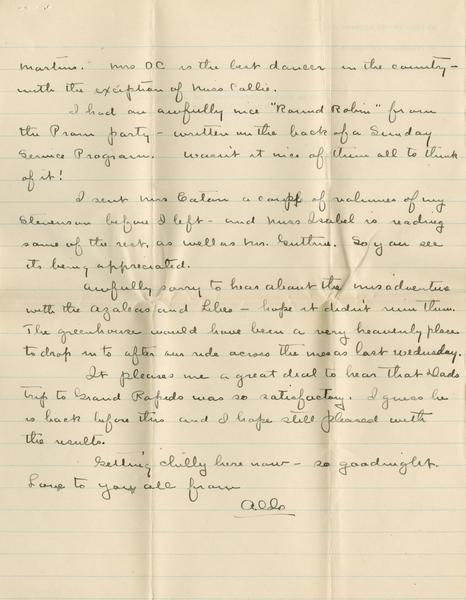 Martins." Mrs OC is the best dancer in the country -
with the exception of Miss Callie.
I had an awfully nice "Round Robin" from
the Prom party - written on the back of a Sunday
Service Program. Wasn't it nice of them all to think
of it!
I sent Mrs Eaton a couple of volumes of my
Stevenson before I left - and Miss Isabel is reading
some of the rest, as well as Mrs. Guthrie. So you see
its being appreciated.
Awfully sorry to hear about the misadventure
with the Azaleas and Lilies - hope it didn't ruin them.
The greenhouse would have been a very heavenly place
to drop in to after our ride across the mesas last Wednesday.
It pleases me a great deal to hear that Dads
trip to Grand Rapids was so satisfactory. I guess he
is back before this and I hope still pleased with
the results.
Getting chilly here now - so goodnight.
Love to you all from
Aldo